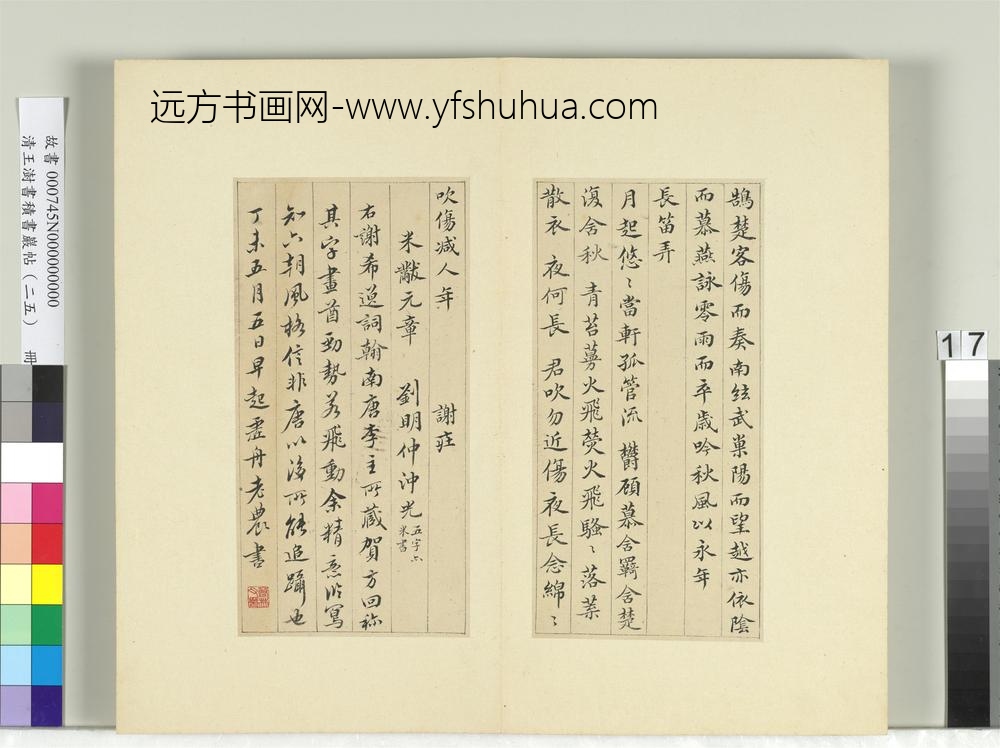 远方书画网-www.yfshuhua.com
故書 000745N000000000
清王澍書積書巖帖（二五） 冊
17
鵠楚客傷而奏南絃武巢陽而望越亦依陰
而慕燕詠零雨而卒歲吟秋風以永年
長笛弄
月起悠〻當軒孤管流 欝顧慕含羈含楚
復含秋 青苔蔓火飛熒火飛騷〻落葉
散衣 夜何長 君吹勿近傷夜長念綿〻
吹傷减人年 謝莊
米黻元章 劉明仲沖光 五字六米書
右謝希逸詞翰南唐李主所藏賀方回称
其字畫酋勁勢若飛動余精意临寫
知六朝風格信非唐以後所能追躡也
丁未五月五日早起虛舟老農書